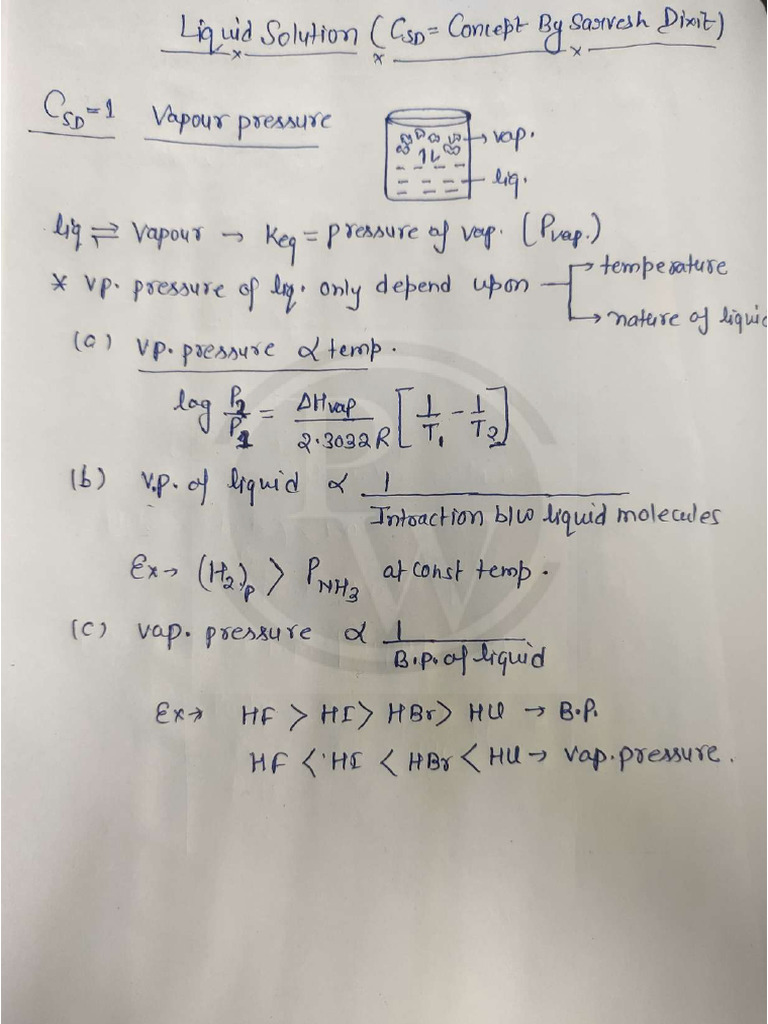 Liquid Solution (CSD = Concept By Sarvesh Dixit)
CSD = 1 Vapour pressure
→ vap.
→ liq.
liq ⇌ Vapour → Keq = Pressure of vap. (Pvap.)
* vp. pressure of liq. only depend upon → temperature
→ nature of liquid
(a) vp. pressure α temp.
log P2/P1 = ΔHvap/2.3032R [1/T1 - 1/T2]
(b) v.p. of liquid α 1/Intraction b/w liquid molecules
Ex → (H2)p > PNH3 at const temp.
(c) vap. pressure α 1/B.P. of liquid
Ex → HF > HI > HBr > HCl → B.P.
HF < HI < HBr < HCl → vap. pressure.
PW